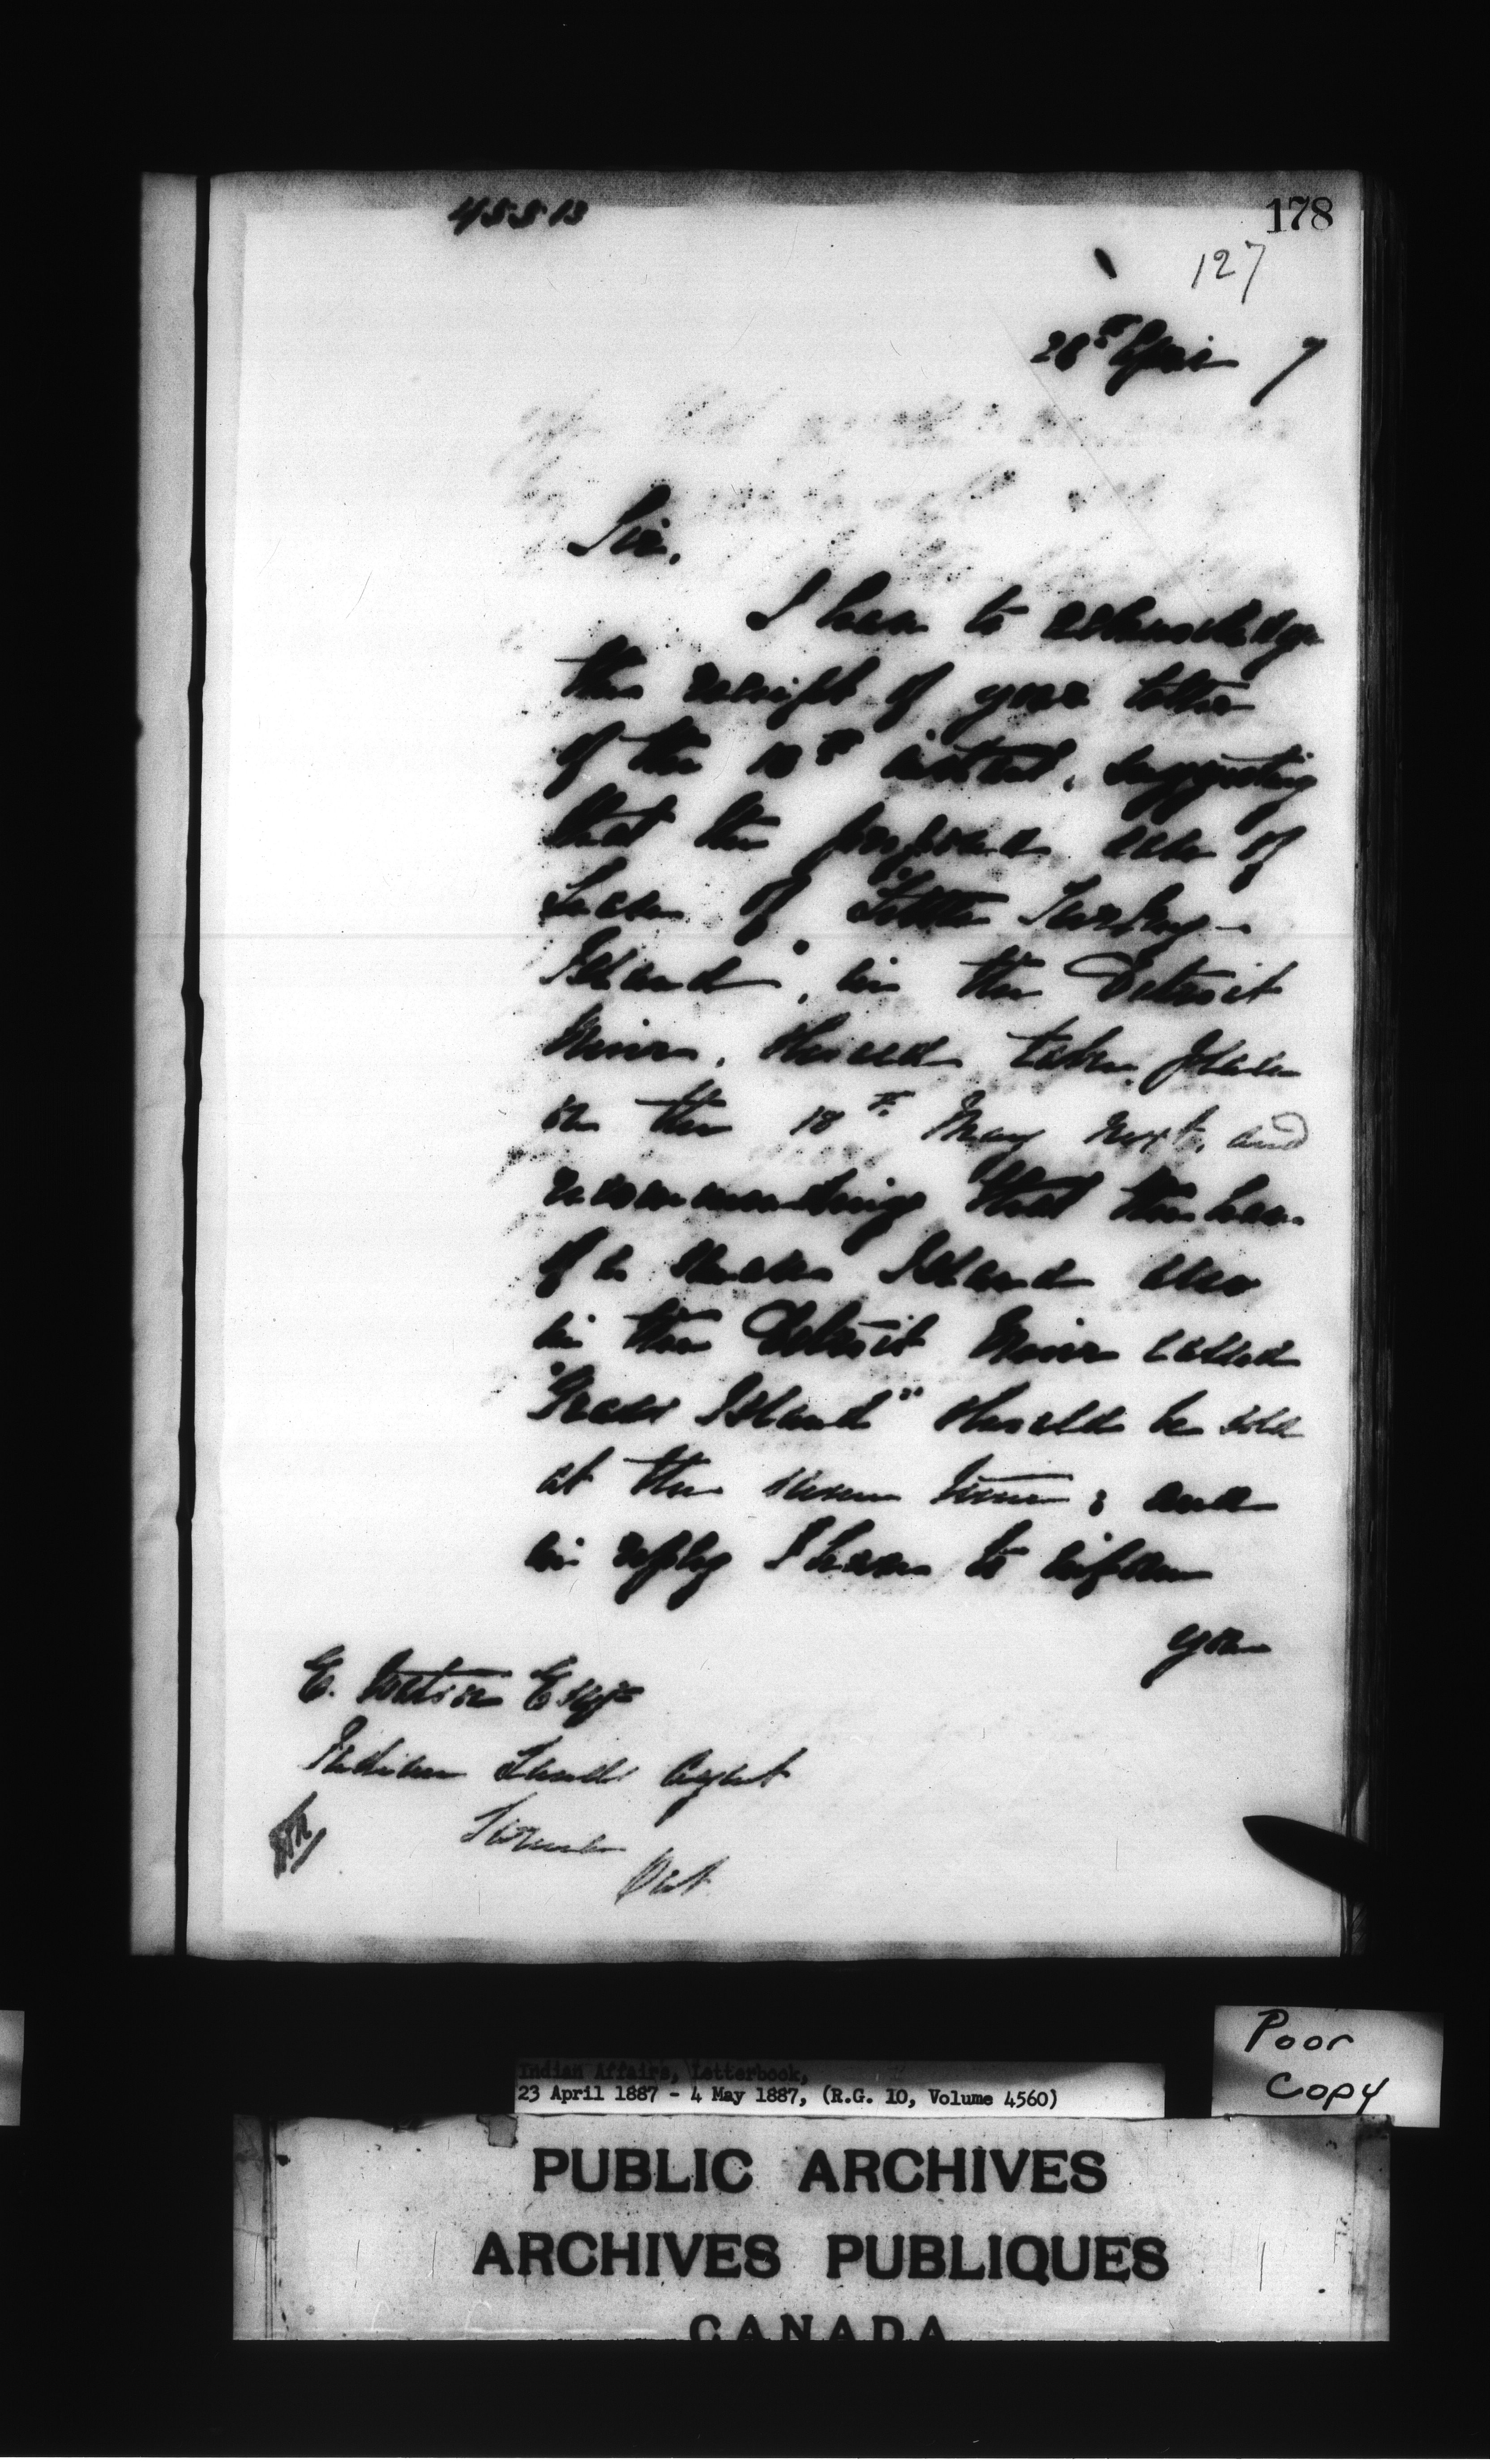 45513
178
127
28th April 7
Sir,
I have to acknowledge
the receipt of your letter
of the 18th instant, suggesting
that the proposed sale of
Lease of "Little Turkey
Island", in the Detroit
River, should take place
on the 18th May next, and
recommending that the lease
of a small Island also
in the Detroit River called
"Grass Island" should be sold
at the same time; and
in reply I have to inform
you
E. Watson Esqre
Indian Land Agent
Sarnia
Ont
Indian Affairs, Letterbook,
23 April 1887 - 4 May 1887, (R.G. 10, Volume 4560)
Poor
Copy
PUBLIC ARCHIVES
ARCHIVES PUBLIQUES
CANADA